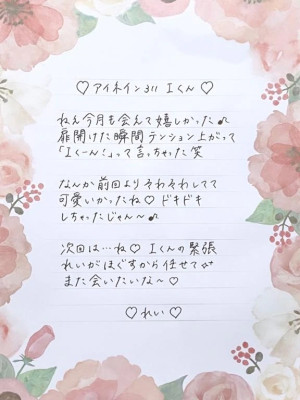 ♡ アイネイン311 Iくん ♡
ねえ今月も会えて嬉しかった♪
扉開けた瞬間テンション上がって
「Iくーん!」って言っちゃった笑
なんか前回よりそわそわしてて
可愛いかったね♡ ドキドキ
しちゃったじゃん〜♪
次回は…ね♡ Iくんの緊張
れいがほぐすから任せて✨
また会いたいな〜♡
♡ れい ♡